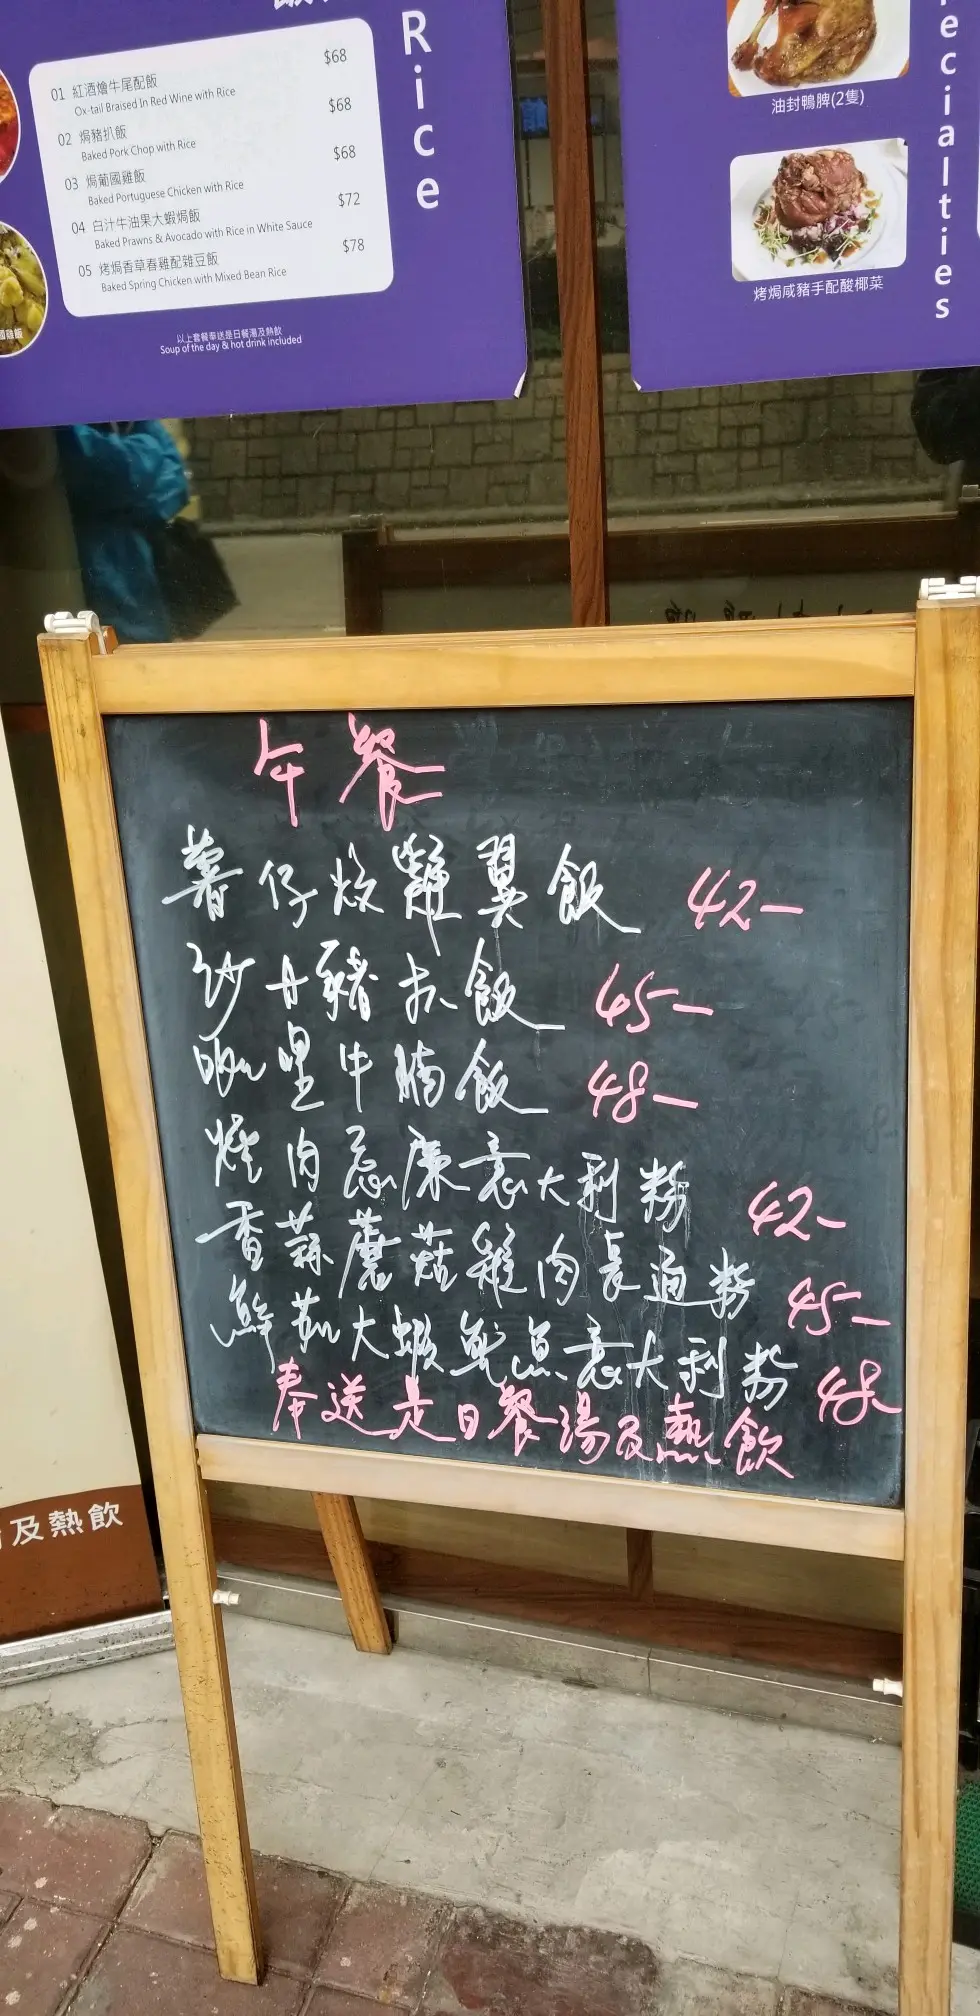 Rice
01 紅酒燴牛尾配飯 $68
Ox-tail Braised In Red Wine with Rice
02 焗豬扒飯 $68
Baked Pork Chop with Rice
03 焗葡國雞飯 $68
Baked Portuguese Chicken with Rice
04 白汁牛油果大蝦焗飯 $72
Baked Prawns & Avocado with Rice in White Sauce
05 烤焗香草春雞配雜豆飯 $78
Baked Spring Chicken with Mixed Bean Rice
以上套餐奉送是日餐湯及熱飲
Soup of the day & hot drink included
國雞飯
ecialties
油封鴨脾(2隻)
烤焗咸豬手配酸椰菜
午餐
薯仔炆雞翼飯 42-
沙丹豬扒飯 45-
咖喱牛腩飯 48-
煙肉忌廉意大利粉 42-
香蒜蘑菇雞肉長通粉 45-
鮮茄大蝦魷魚意大利粉 48-
奉送是日餐湯及熱飲
及熱飲